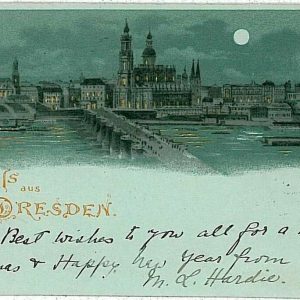 ls aus
DRESDEN.
Best wishes to you all for a
as & Happy new year from
M. L. Hardie.